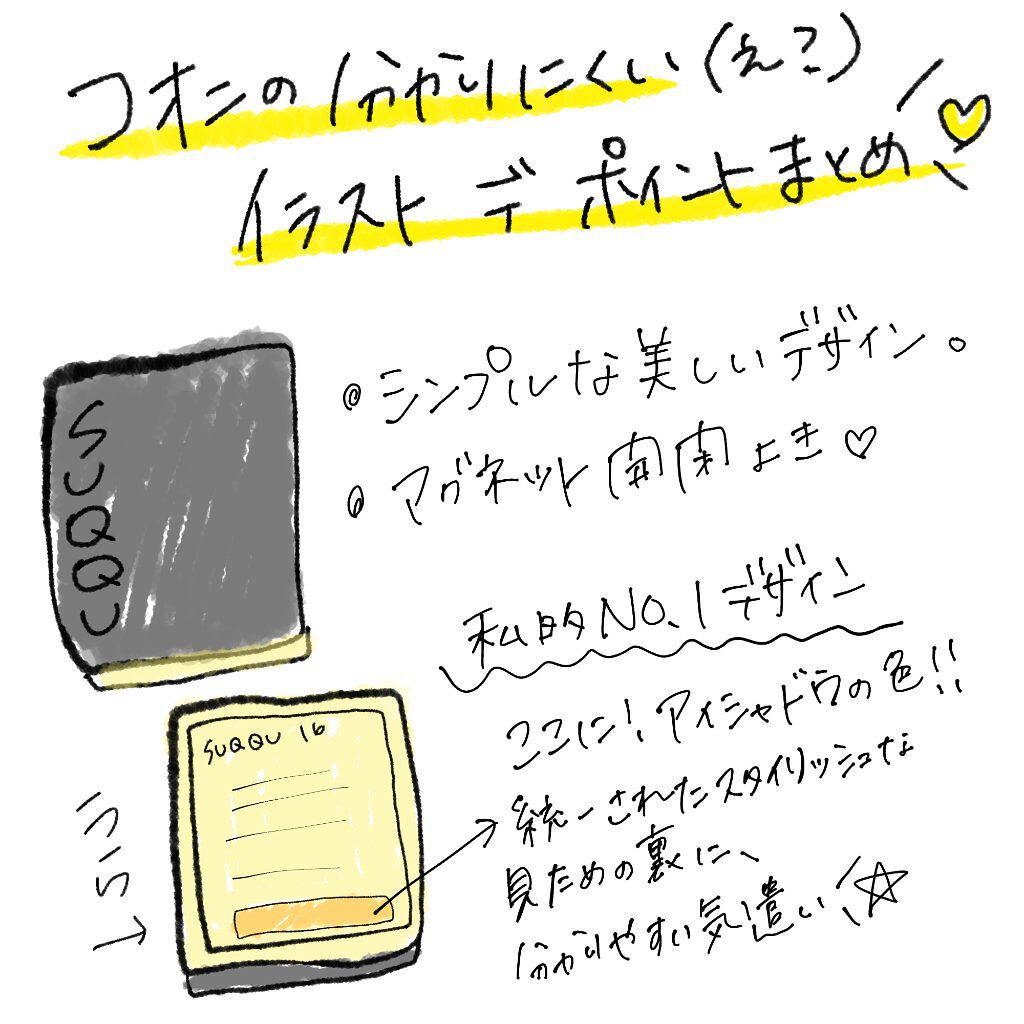 コオニの分かりにくい(え?)
イラスト デ ポイントまとめ♡
SUQQU
・シンプルな美しいデザイン。
・マグネット開閉よき♡
私的NO.1デザイン
SUQQU 16
うらこう
ここに!アイシャドウの色!!
統一されたスタイリッシュな
見ための裏に、
分かりやすい気遣い☆